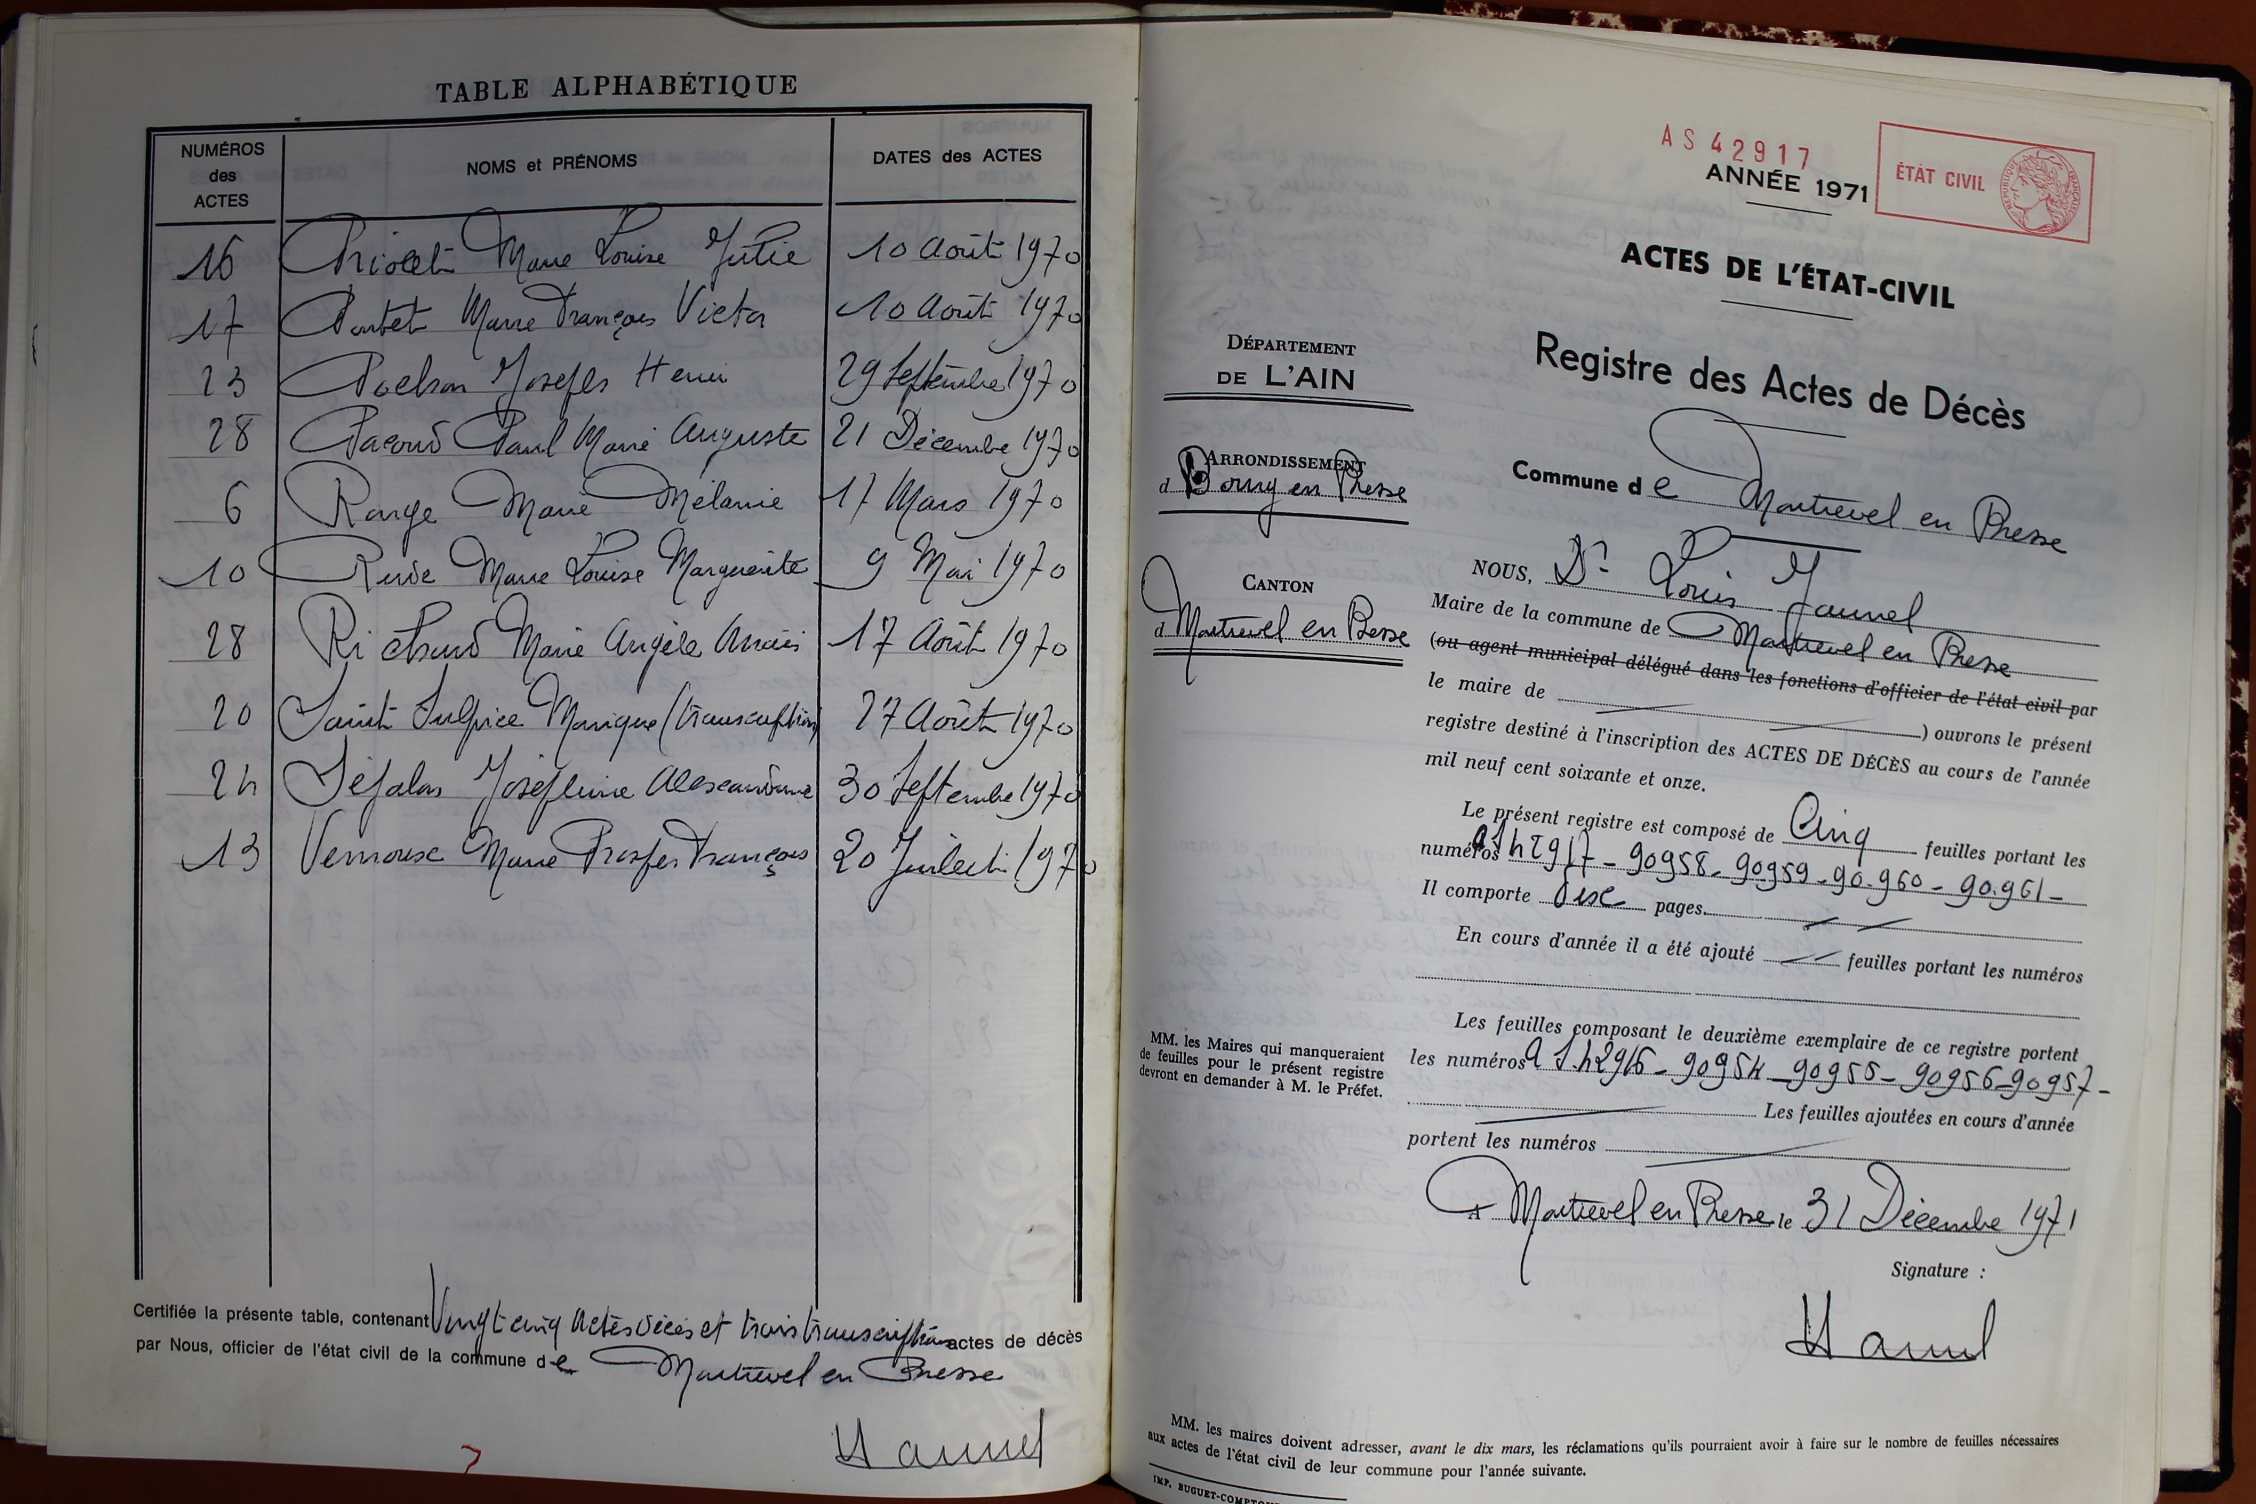 TABLE ALPHABÉTIQUE
NUMÉROS des ACTES NOMS et PRÉNOMS DATES des ACTES
16 Marie Louise Julie 10 Août 1970
17 Marie François Victor 10 Août 1970
23 Joseph Henri 29 Septembre 1970
28 Pacoud Paul Marie Auguste 21 Décembre 1970
6 Marie Mélanie 17 Mars 1970
10 Rude Marie Louise Marguerite 9 Mai 1970
28 Richard Marie Angèle Anaïs 17 Août 1970
20 Saint Sulpice Monique (transcription) 27 Août 1970
24 Joséphine Alexandrine 30 Septembre 1970
13 Vernoux Marie Prosper François 20 Juillet 1970
Certifiée la présente table, contenant Vingt cinq actes décès et trois transcriptions actes de décès
par Nous, officier de l'état civil de la commune de Montrevel en Bresse
AS 42917
ANNÉE 1971
ÉTAT CIVIL
RÉPUBLIQUE FRANÇAISE
ACTES DE L'ÉTAT-CIVIL
Registre des Actes de Décès
DÉPARTEMENT
DE L'AIN
ARRONDISSEMENT
d Bourg en Bresse
CANTON
d Montrevel en Bresse
Commune de Montrevel en Bresse
NOUS, Dr Louis Jannel
Maire de la commune de Montrevel en Bresse
(ou agent municipal délégué dans les fonctions d'officier de l'état civil par
le maire de ) ouvrons le présent
registre destiné à l'inscription des ACTES DE DÉCÈS au cours de l'année
mil neuf cent soixante et onze.
Le présent registre est composé de Cinq feuilles portant les
numéros AS 42917 - 90958 - 90959 - 90.960 - 90.961 -
Il comporte dix pages.
En cours d'année il a été ajouté feuilles portant les numéros
Les feuilles composant le deuxième exemplaire de ce registre portent
les numéros AS 42916 - 90954 - 90955 - 90956 - 90957 -
Les feuilles ajoutées en cours d'année
portent les numéros
MM. les Maires qui manqueraient
de feuilles pour le présent registre
devront en demander à M. le Préfet.
A Montrevel en Bresse le 31 Décembre 1971
Signature :
MM. les maires doivent adresser, avant le dix mars, les réclamations qu'ils pourraient avoir à faire sur le nombre de feuilles nécessaires
aux actes de l'état civil de leur commune pour l'année suivante.
IMP. BUGUET-COMPTOUR